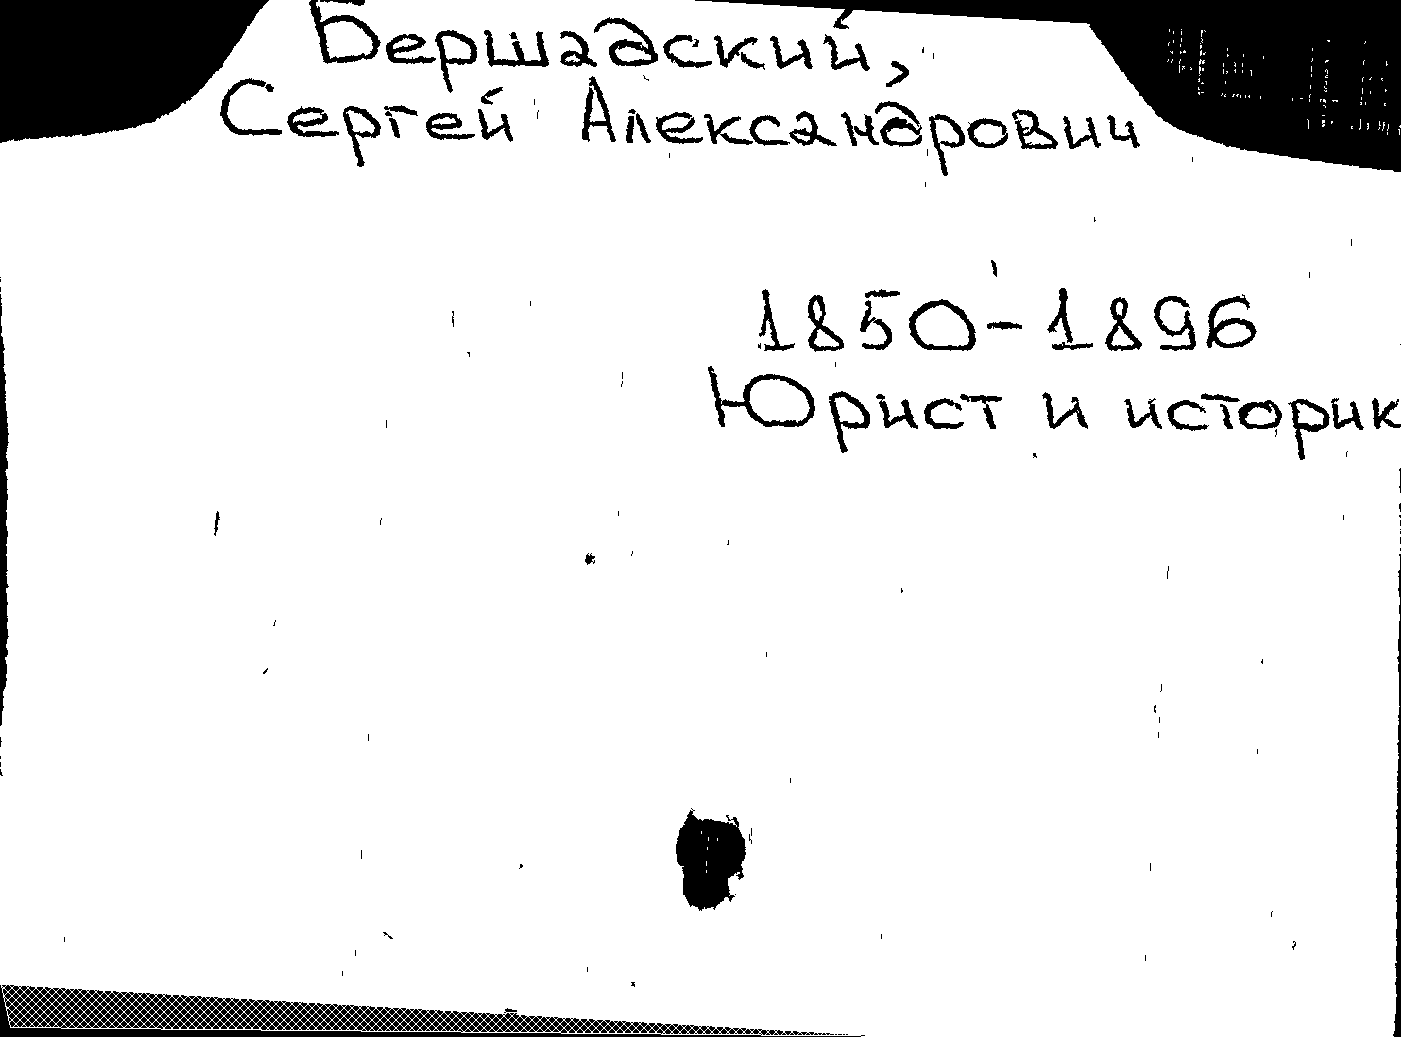 Бершадский,
Сергей Александрович
1850-1896
Юрист и историк